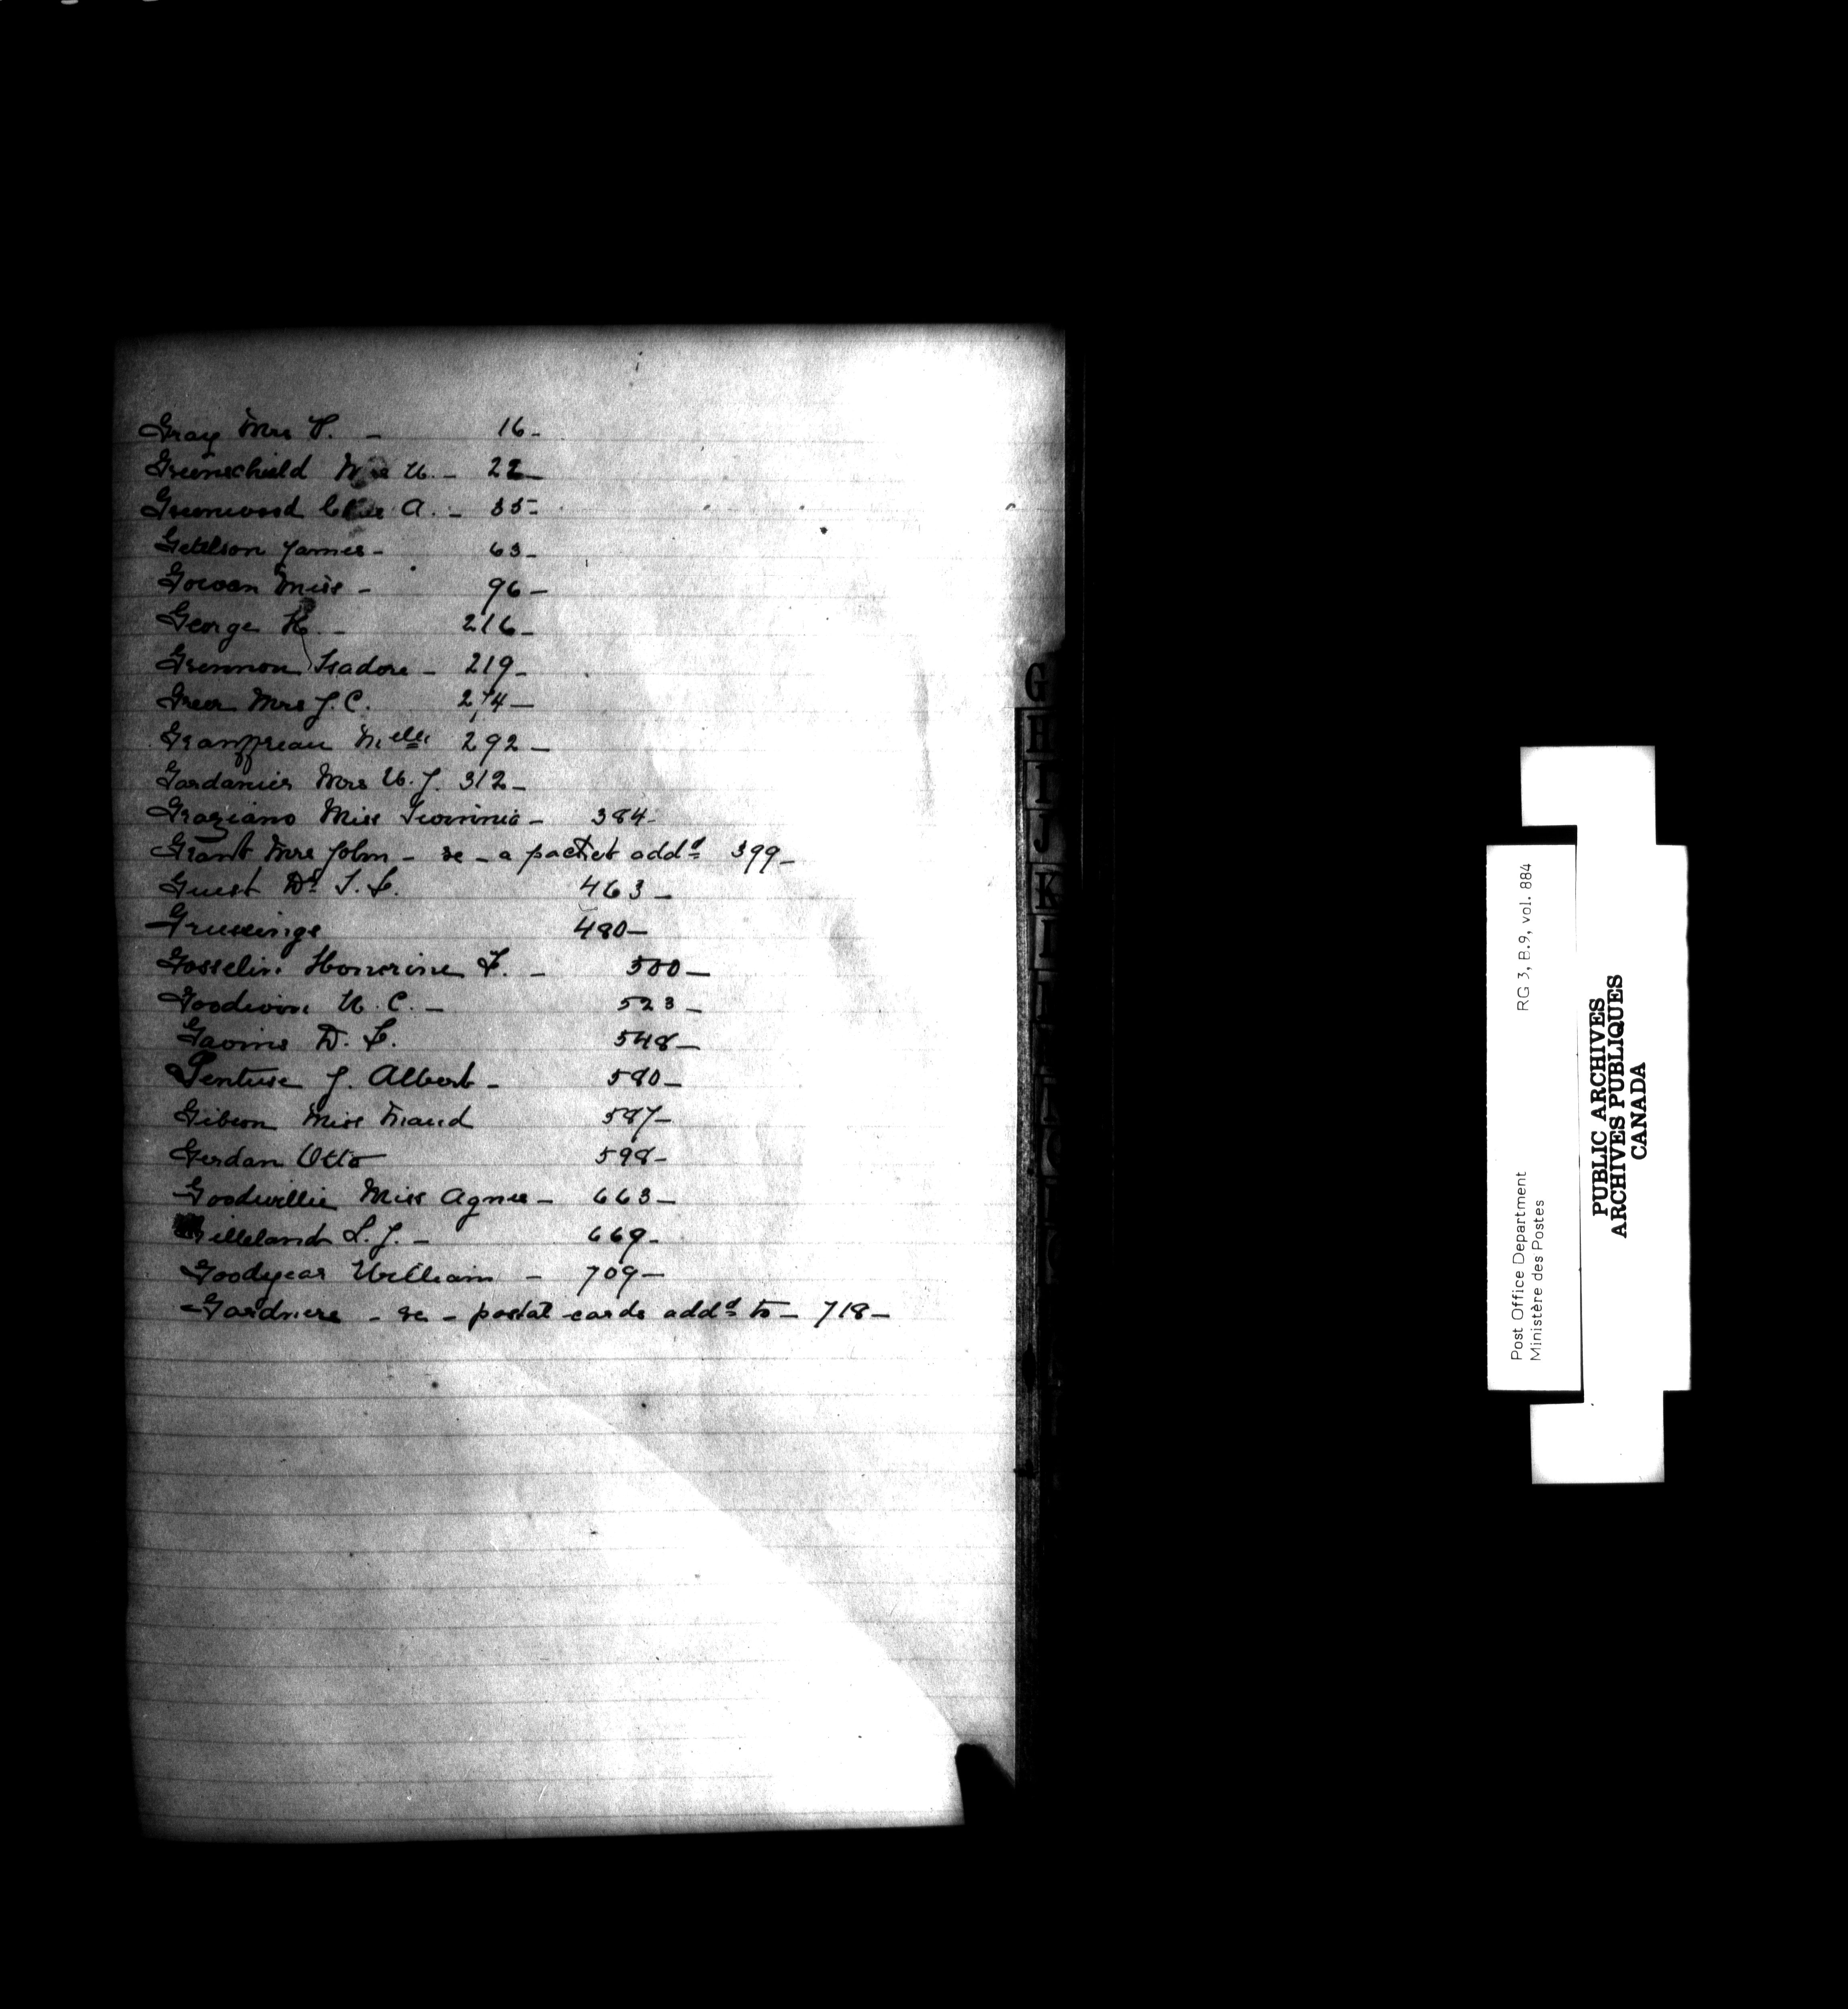 Gray Mrs P. - 16-
Greenschield Mrs W. - 22-
Greenwood A. - 35-
Getelson James - 63-
Gowan Miss - 96-
George H. - 216-
Grennon Isadore - 219-
Greer Mrs J. C. 274-
Granffreau Melle 292-
Gardanier Mrs W. J. 312-
Graziano Miss - 384-
Grant Mrs John - re - a packet addd 399-
Guest Dr. S. L. 463-
480-
Gosselin Honorine F. - 500-
Goodwin W. C. - 523-
Gavins D. L. 548-
Gentuse J. Albert - 580-
Gibson Miss Maud 587-
Gerdan Otto 598-
Goodwillie Miss Agnes - 663-
Gilleland L. J. - 669-
Goodyear William - 709-
Gardners - re - postal cards addd to - 718-
G
H
I
J
K
Post Office Department RG 3, B.9, vol. 884
Ministère des Postes
PUBLIC ARCHIVES
ARCHIVES PUBLIQUES
CANADA